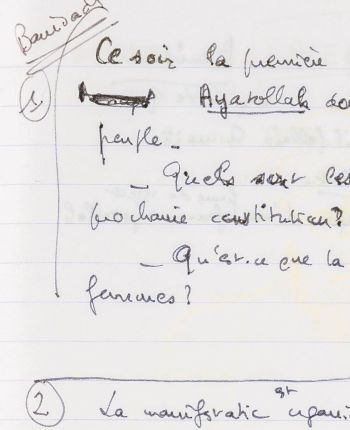 Banisadr
Ce soir la première
1 Ayatollah
peuple.
- Quels sont les
prochaine constitution?
- Qu'est-ce que la
femmes?
2 La manifestation est organi